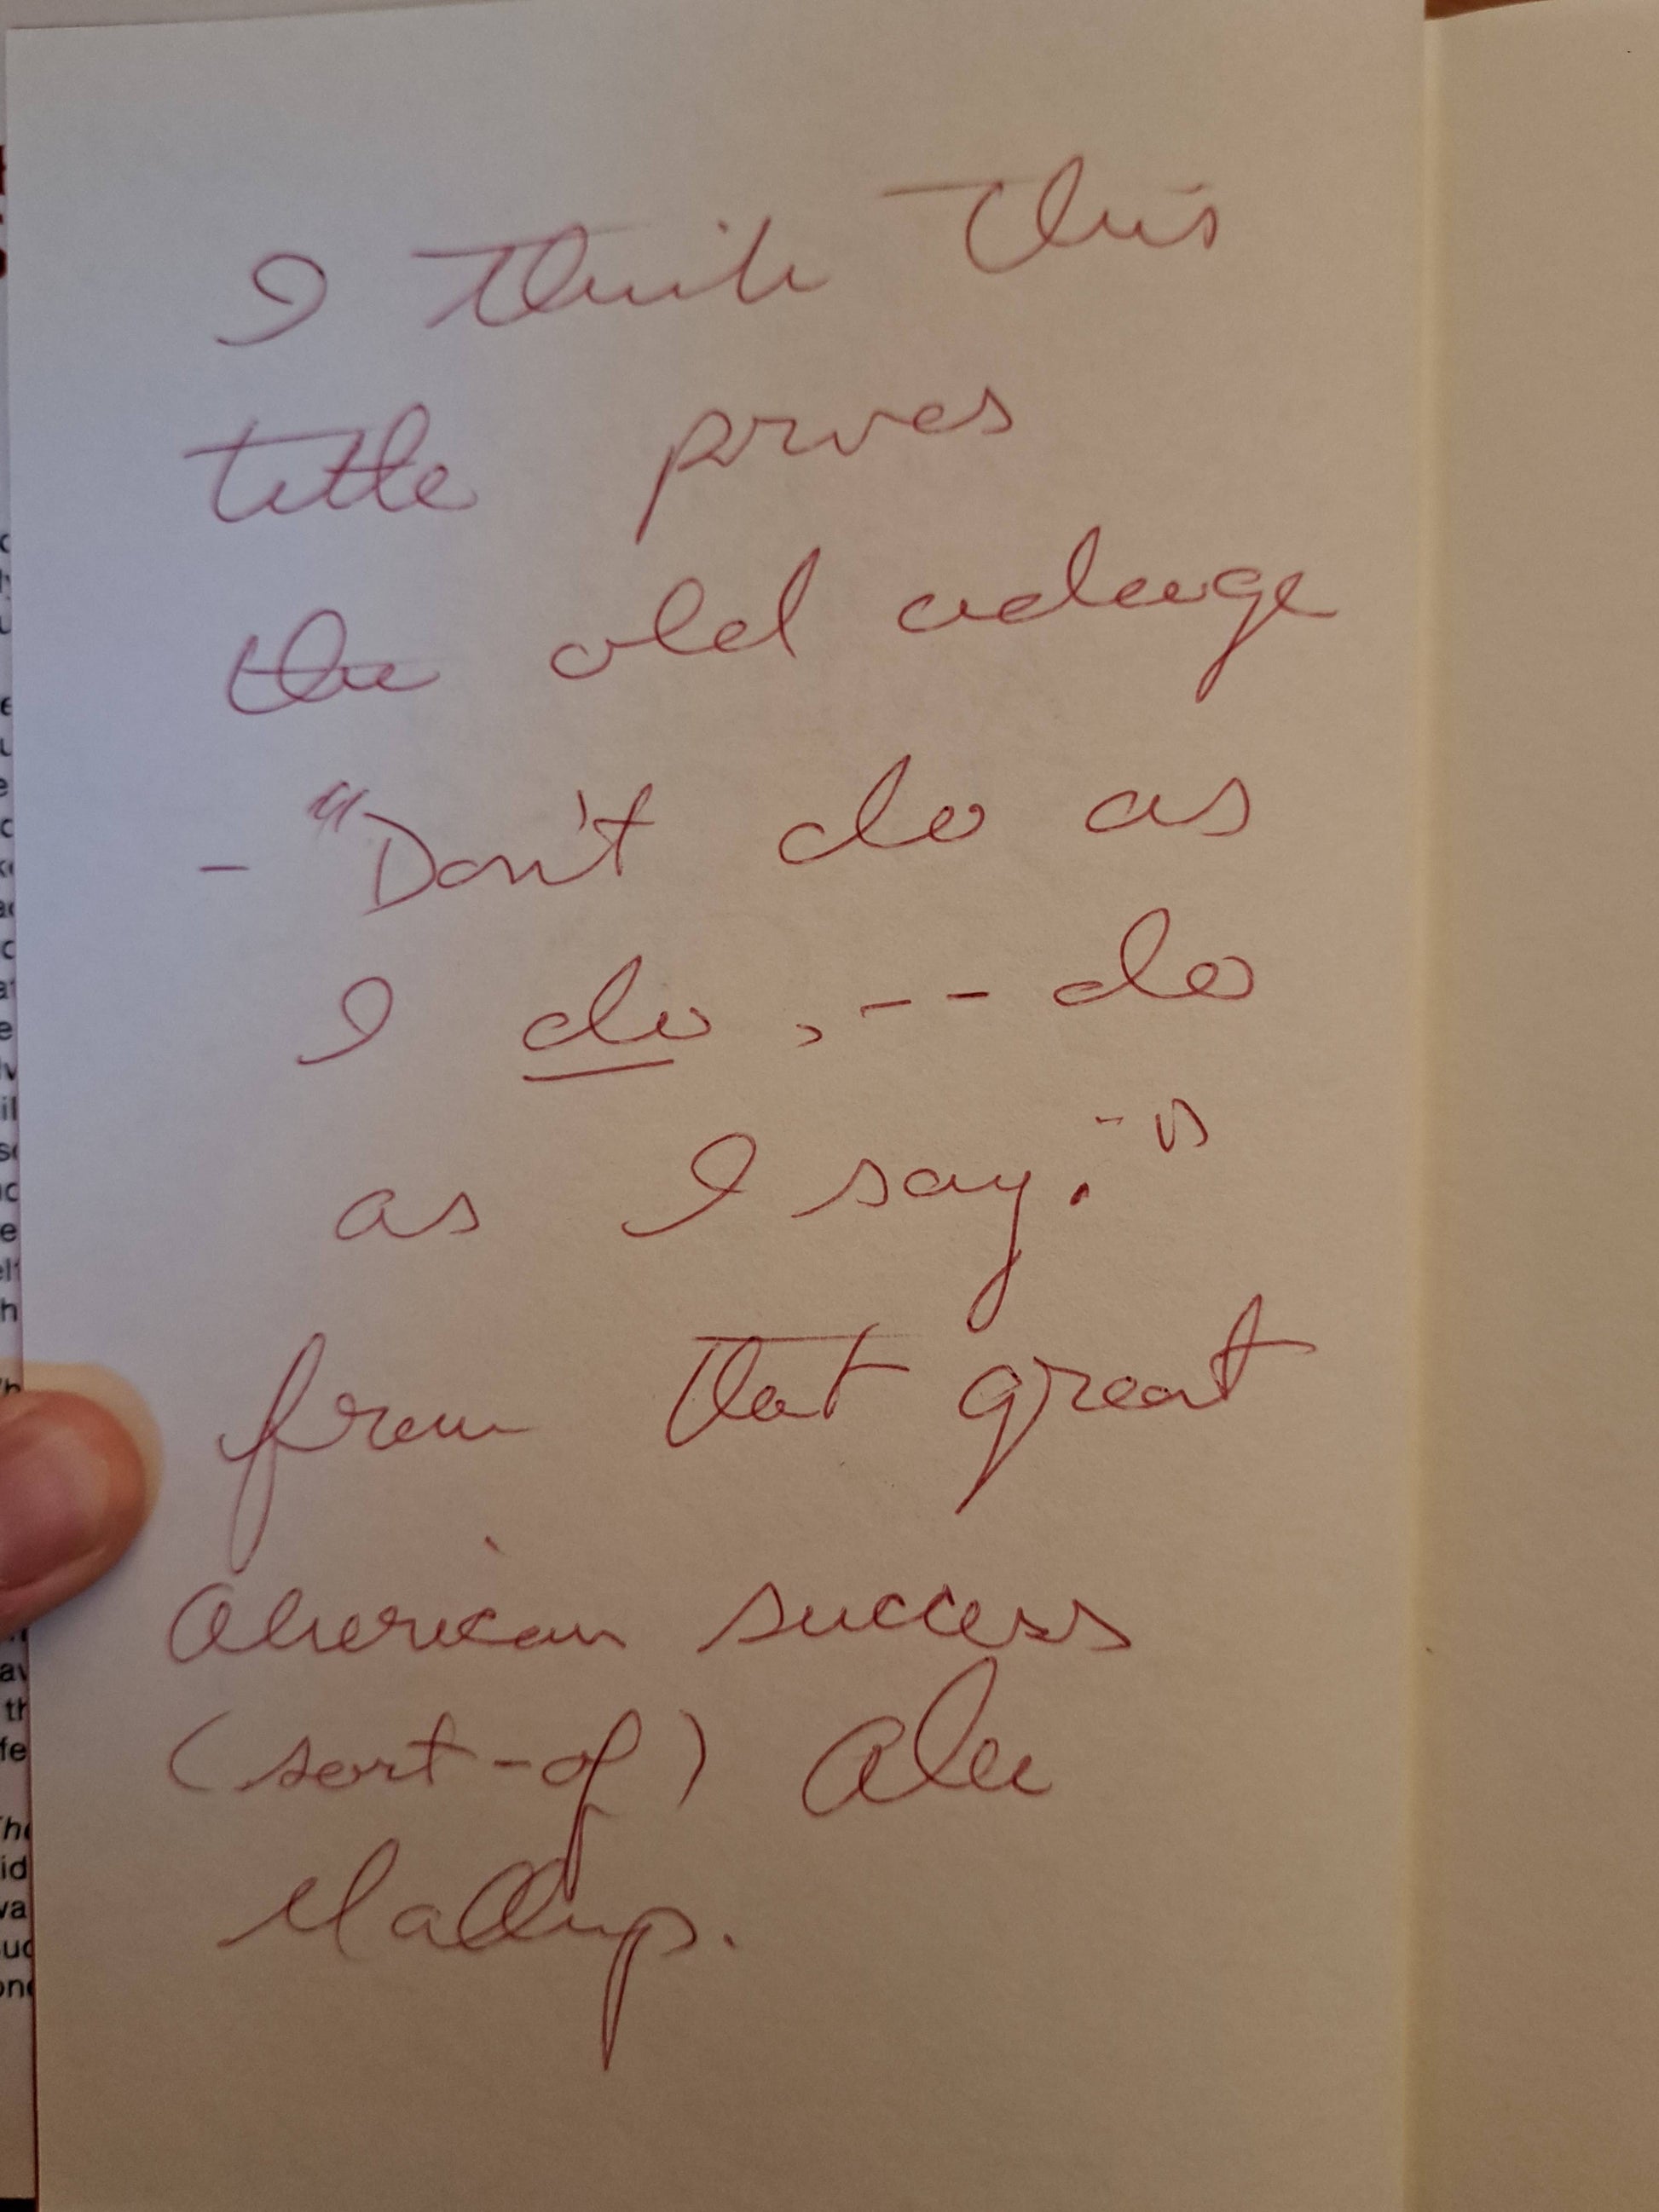 I think this
title proves
the old adage
- "Don't do as
I do, -- do
as I say." -
from that great
American success
(sort-of) Alec